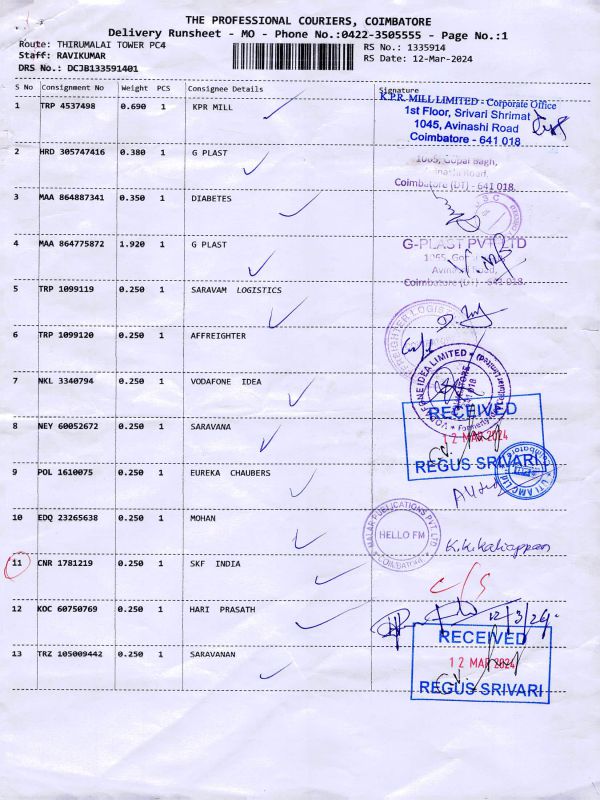 THE PROFESSIONAL COURIERS, COIMBATORE
Delivery Runsheet - MO - Phone No.:0422-3505555 - Page No.:1
Route: THIRUMALAI TOWER PC4
RS No.: 1335914
Staff: RAVIKUMAR
RS Date: 12-Mar-2024
DRS No.: DCJB133591401
S No Consignment No Weight PCS Consignee Details Signature
1 TRP 4537498 0.690 1 KPR MILL
K.P.R. MILL LIMITED - Corporate Office
1st Floor, Srivari Shrimat
1045, Avinashi Road
Coimbatore - 641 018
2 HRD 305747416 0.380 1 G PLAST
1065, Gopal Bagh,
Avinashi Road,
Coimbatore (DT) - 641 018.
3 MAA 864887341 0.350 1 DIABETES
4 MAA 864775872 1.920 1 G PLAST
G-PLAST PVT LTD
1065,
Avinashi Road,
Coimbatore (DT) - 641 018.
5 TRP 1099119 0.250 1 SARAVAM LOGISTICS
6 TRP 1099120 0.250 1 AFFREIGHTER
7 NKL 3340794 0.250 1 VODAFONE IDEA
VODAFONE IDEA LIMITED
8 NEY 60052672 0.250 1 SARAVANA
RECEIVED
12 MAR 2024
REGUS SRIVARI
9 POL 1610075 0.250 1 EUREKA CHAUBERS
10 EDQ 23265638 0.250 1 MOHAN
MALAR PUBLICATIONS PVT. LTD
HELLO FM
COIMBATORE
K.K.Kaliappan
11 CNR 1781219 0.250 1 SKF INDIA
C/S
12 KOC 60750769 0.250 1 HARI PRASATH
12/3/24.
13 TRZ 105009442 0.250 1 SARAVANAN
RECEIVED
12 MAR 2024
REGUS SRIVARI